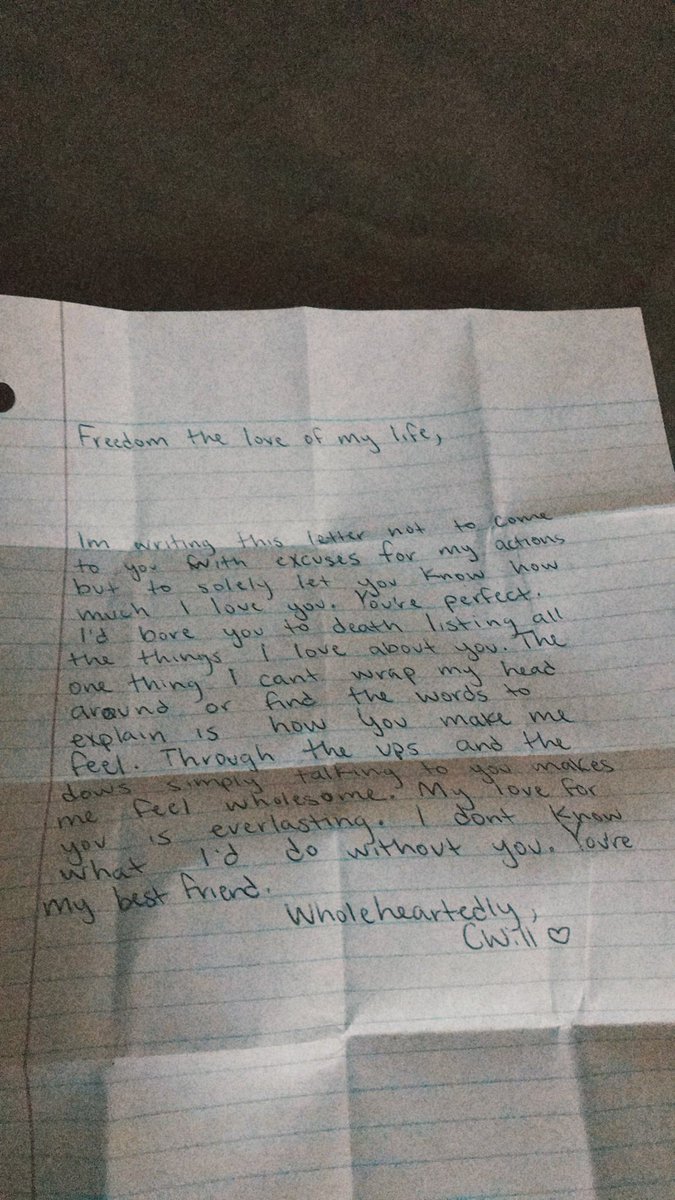 Freedom the love of my life,
Im writing this letter not to come
to you with excuses for my actions
but to solely let you know how
much I love you. You're perfect.
I'd bore you to death listing all
the things I love about you. The
one thing I cant wrap my head
around or find the words to
explain is how you make me
feel. Through the ups and the
dows simply talking to you makes
me feel wholesome. My love for
you is everlasting. I dont know
what I'd do without you. You're
my best friend.
Wholeheartedly,
CWill ♡